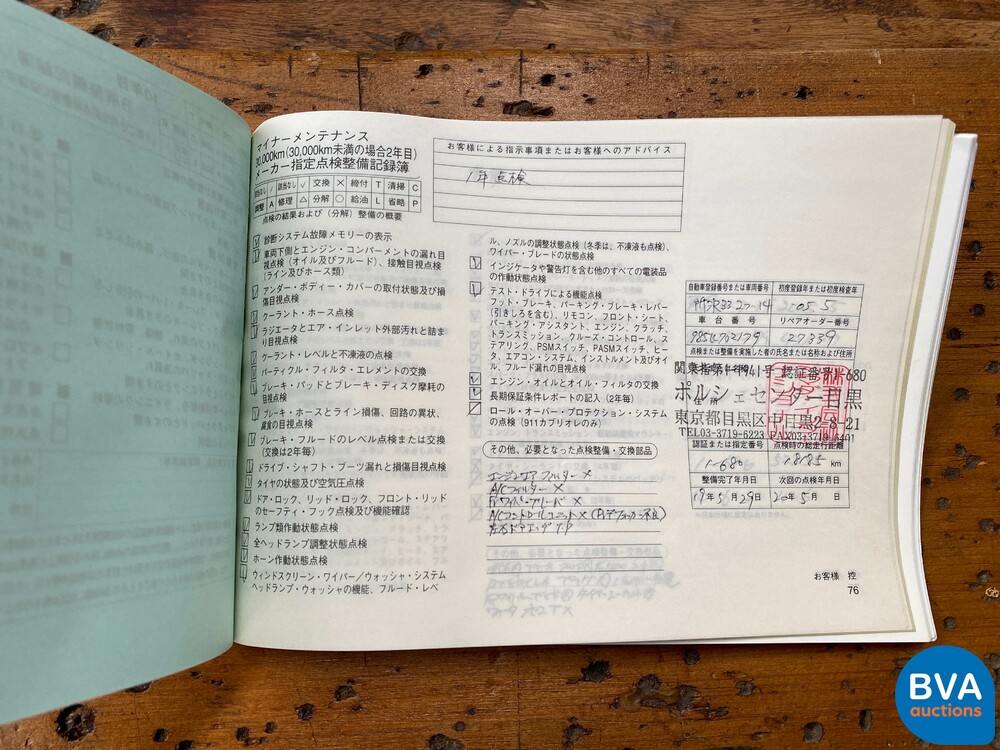 マイナーメンテナンス
30,000km(30,000km未満の場合2年目)
メーカー指定点検整備記録簿
該当なし / 交換 × 締付 T 清掃 C
調整 A 修理 △ 分解 ○ 給油 L 省略 P
点検の結果および（分解）整備の概要
診断システム故障メモリーの表示
車両下側とエンジン・コンパーメントの漏れ目
視点検（オイル及びフルード）、接触目視点検
（ライン及びホース類）
アンダー・ボディー・カバーの取付状態及び損
傷目視点検
クーラント・ホース点検
ラジエータとエア・インレット外部汚れと詰ま
り目視点検
クーラント・レベルと不凍液の点検
パーティクル・フィルタ・エレメントの交換
ブレーキ・パッドとブレーキ・ディスク摩耗の
目視点検
ブレーキ・ホースとライン損傷、回路の異状、
腐食の目視点検
ブレーキ・フルードのレベル点検または交換
（交換は2年毎）
ドライブ・シャフト・ブーツ漏れと損傷目視点検
タイヤの状態及び空気圧点検
ドア・ロック、リッド・ロック、フロント・リッド
のセーフティ・フック点検及び機能確認
ランプ類作動状態点検
全ヘッドランプ調整状態点検
ホーン作動状態点検
ウィンドスクリーン・ワイパー／ウォッシャ・システム
ヘッドランプ・ウォッシャの機能、フルード・レベ
お客様による指示事項またはお客様へのアドバイス
1年点検
ル、ノズルの調整状態点検（冬季は、不凍液も点検）、
ワイパー・ブレードの状態点検
インジケータや警告灯を含む他のすべての電装品
の作動状態点検
テスト・ドライブによる機能点検
フット・ブレーキ、パーキング・ブレーキ・レバー
（引きしろを含む）、リモコン、フロント・シート、
パーキング・アシスタント、エンジン、クラッチ、
トランスミッション、クルーズ・コントロール、ス
テアリング、PSMスイッチ、PASMスイッチ、ヒー
タ、エアコン・システム、インストルメント及びオイ
ル、フルード漏れの目視点検
エンジン・オイルとオイル・フィルタの交換
長期保証条件レポートの記入（2年毎）
ロール・オーバー・プロテクション・システム
の点検（911カブリオレのみ）
その他、必要となった点検整備・交換部品
エンジンエアフィルター ×
A/Cフィルター ×
Frワイパーブレード ×
自動車登録番号または車両番号 初度登録年または初度検査年
車台番号 リペアオーダー番号
27339
点検または整備を実施した者の氏名または名称および住所
ポルシェセンター目黒
東京都目黒区中目黒2-8-21
TEL03-3719-6223 FAX03-3719-6401
認証または指定番号 点検時の総走行距離
km
整備完了年月日 次回の点検年月日
19年5月29日 20年5月 日
お客様 控
76
BVA
auctions